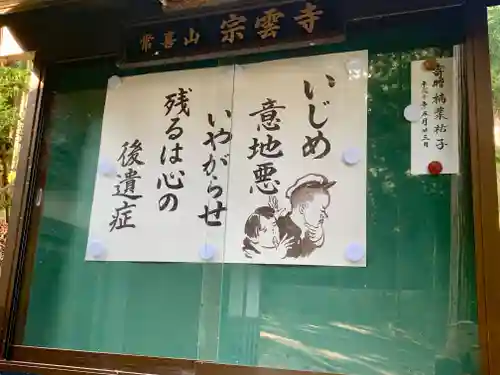 常喜山 宗雲寺
いじめ
意地悪
いやがらせ
残るは心の
後遺症
寄贈 楠葉祐子